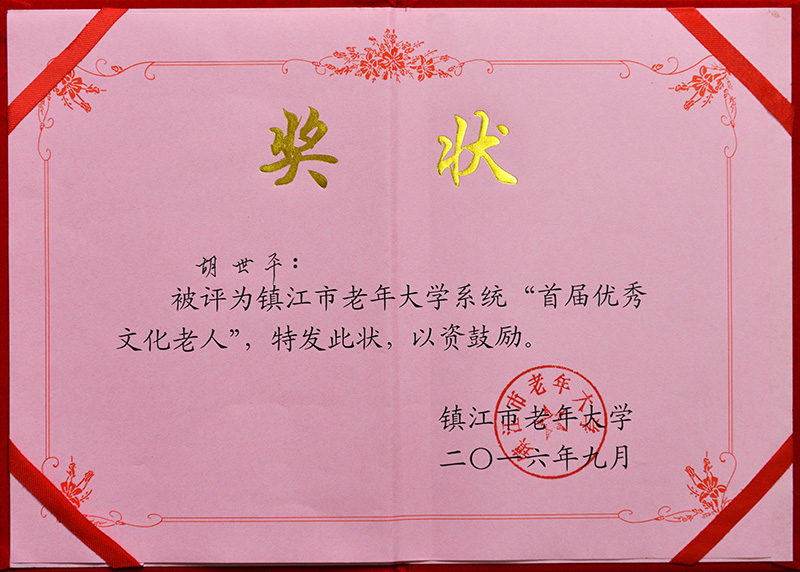 奖 状
胡世平：
被评为镇江市老年大学系统“首届优秀
文化老人”，特发此状，以资鼓励。
镇江市老年大学
镇江市老年大学
二〇一六年九月